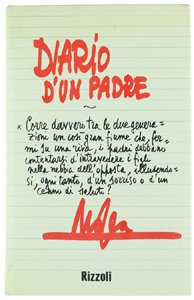 DIARIO
D'UN PADRE
~
× Corre davvero tra le due genera=
zioni un così gran fiume che, fer=
mi su una riva, i padri debbano
contentarsi d'intravedere i figli
nella nebbia dell'opposta, illudendo=
si, ogni tanto, d'un sorriso o d'un
cenno di saluti?
Rizzoli